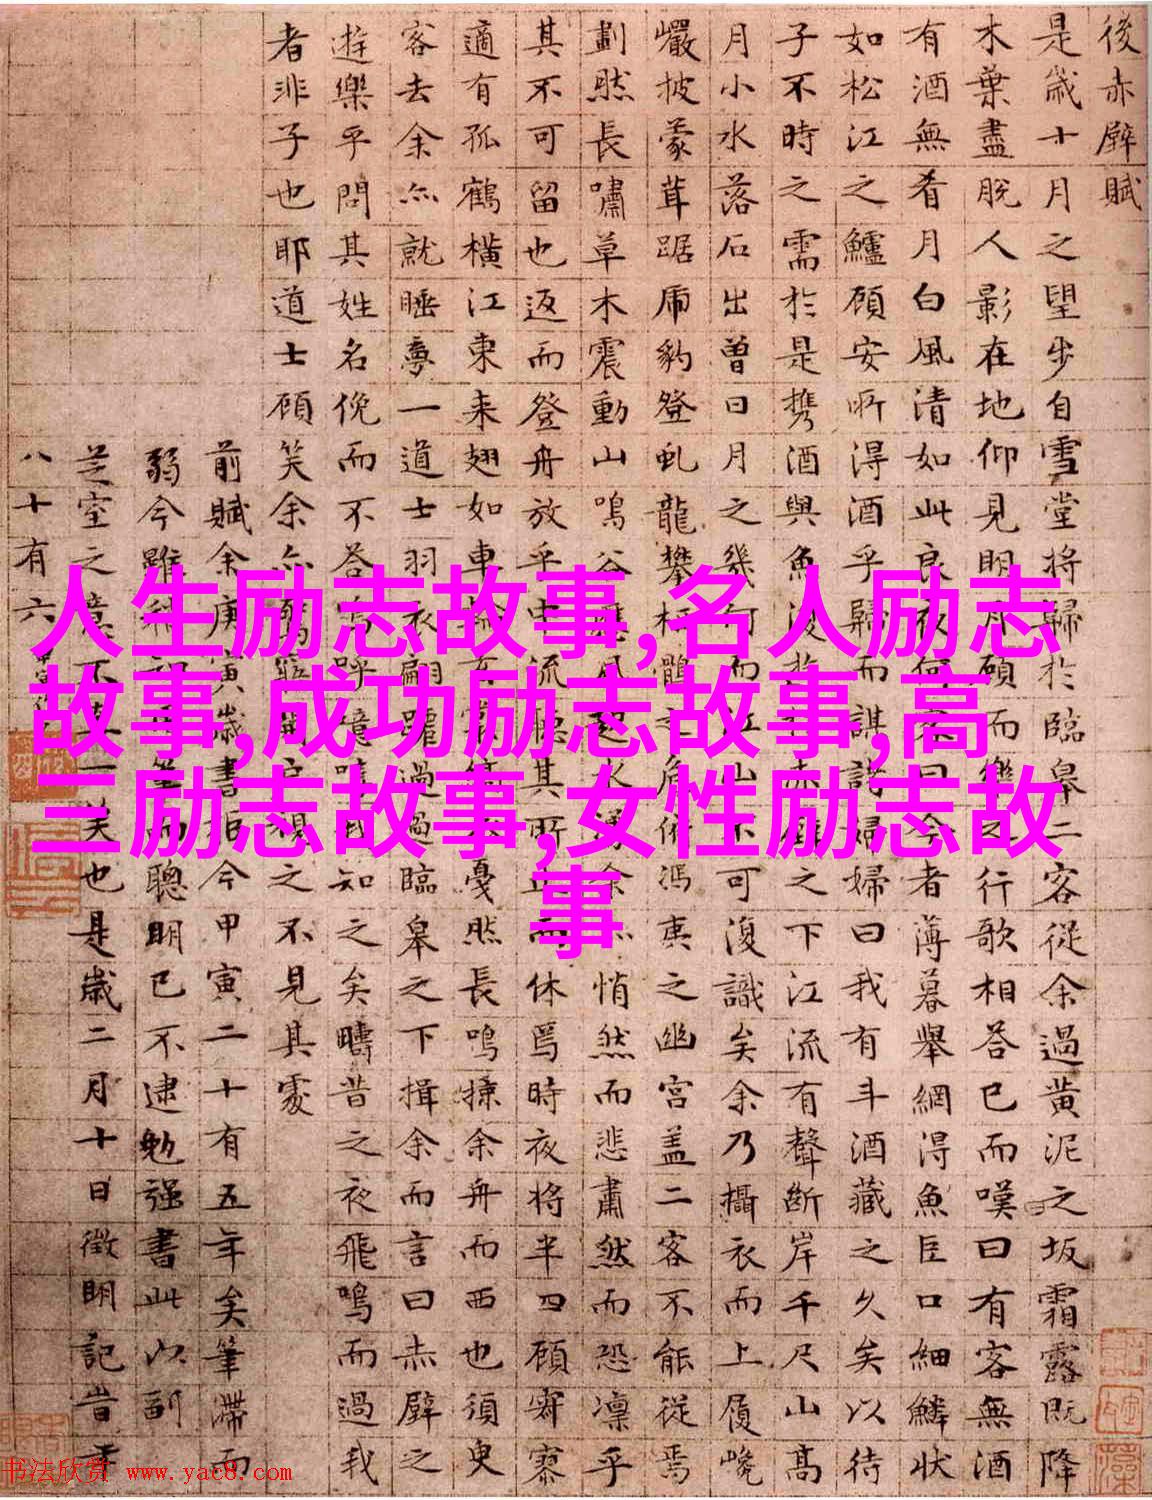 後赤壁賦
是歲十月之望步自雪堂將歸於臨皋二客從余過黃泥之坂霜露既降
木葉盡脫人影在地仰見明月顧而樂之行歌相答已而嘆曰有客無酒
有酒無肴月白風清如此良夜何客曰今者薄暮舉網得魚巨口細鱗狀
如松江之鱸顧安所得酒乎歸而謀諸婦婦曰我有斗酒藏之久矣以待
子不時之需於是攜酒與魚復遊於赤壁之下江流有聲斷岸千尺山高
月小水落石出曾日月之幾何而江山不可復識矣余乃攝衣而上履巉
巖披蒙茸踞虎豹登虬龍攀栖鶻之危俯馮夷之幽宮盖二客不能從焉
劃然長嘯草木震動山鳴谷應風起水湧余亦悄然而悲肅然而恐凜乎
其不可留也返而登舟放乎中流聽其所止而休焉時夜將半四顧寂寥
適有孤鶴橫江東来翅如車輪玄裳縞衣戛然長鳴掠余舟而西也須臾
客去余亦就睡夢一道士羽衣翩躚過臨皋之下揖余而言曰赤壁之
遊樂乎問其姓名俛而不答嗚呼噫嘻我知之矣疇昔之夜飛鳴而過我
者非子也耶道士顧笑余亦驚寤開戶視之不見其處
前賦余庚寅歲書距今甲寅二十有五年矣筆滯而
弱今雖聰明已不逮勉强書此以副
芝室之意不一笑也是歲二月十日徵明記旹年
八十有六
人生励志故事,名人励志
故事,成功励志故事,高
三励志故事,女性励志故
事
书法欣赏 www.yac8.com